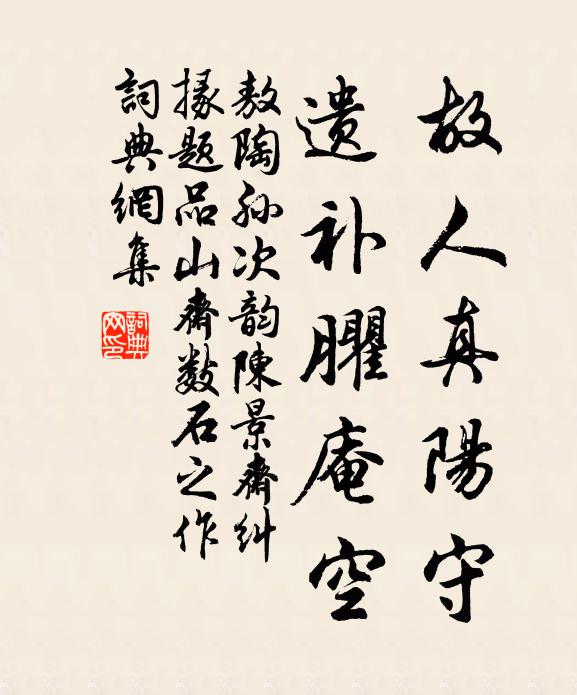 故人真陽守
遗补臞庵空
敖陶孙次韵陳景齋糾
掾題品山齋数石之作
詞典網集
詞典
网印